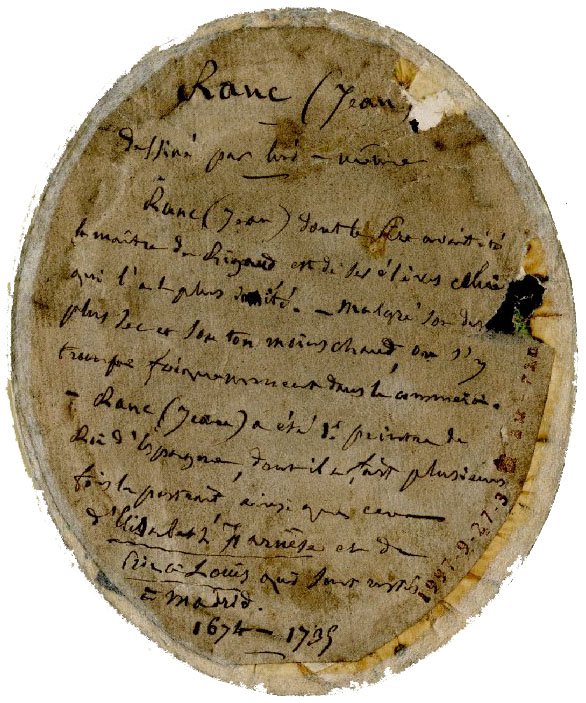 Ranc (Jean)
dessiné par lui-même
Ranc (Jean) dont le père avait été
le maître de Rigaud est de ses élèves celui
qui l'a le plus imité. - malgré son dessin
plus sec et son ton moins chaud on s'y
trompe fréquemment dans le commerce.
- Ranc (Jean) a été 1er peintre du
Roi d'Espagne, dont il a fait plusieurs
fois le portrait ainsi que ceux
d'Elisabeth Farnèse et de
Louis qui sont restés
à Madrid.
1674 - 1735
1997-9-27-3